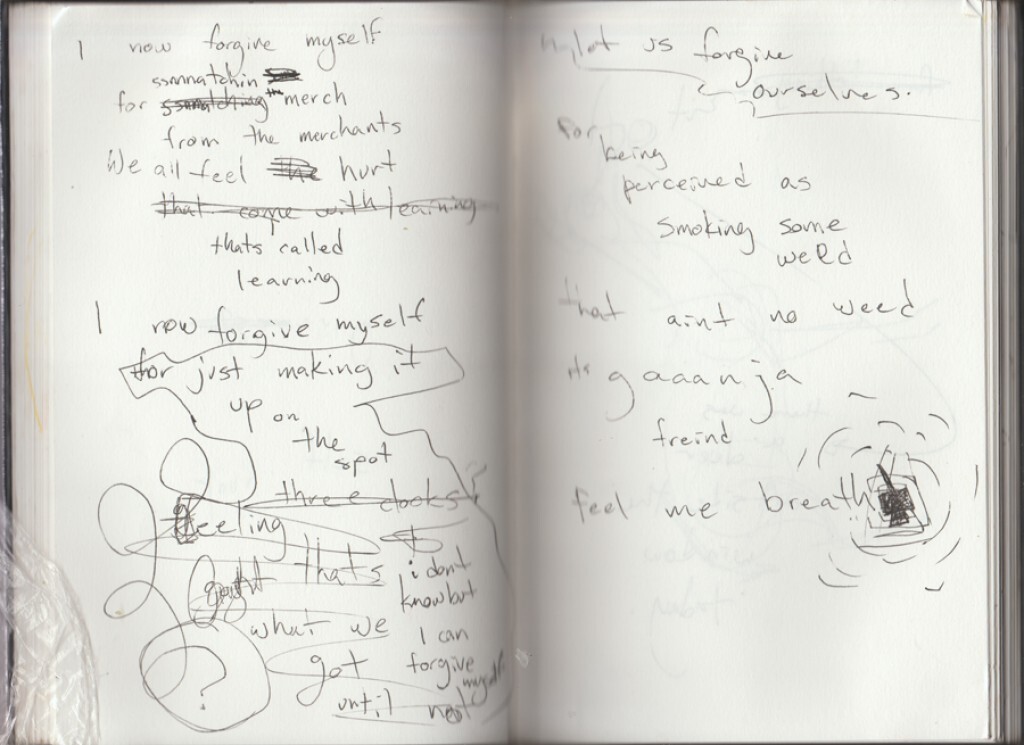 I now forgive myself
ssmnatchin
for ssmatching the merch
from the merchants
We all feel the hurt
that come with learning
thats called
learning
I now forgive myself
for just making it
up on
the
spot
three clocks
feeling
thats
i dont
know but
what we
I can
got
forgive
myself
until
not
let us forgive
ourselves.
for
being
perceived as
smoking some
weed
that aint no weed
its gaaanja
freind
feel me breath